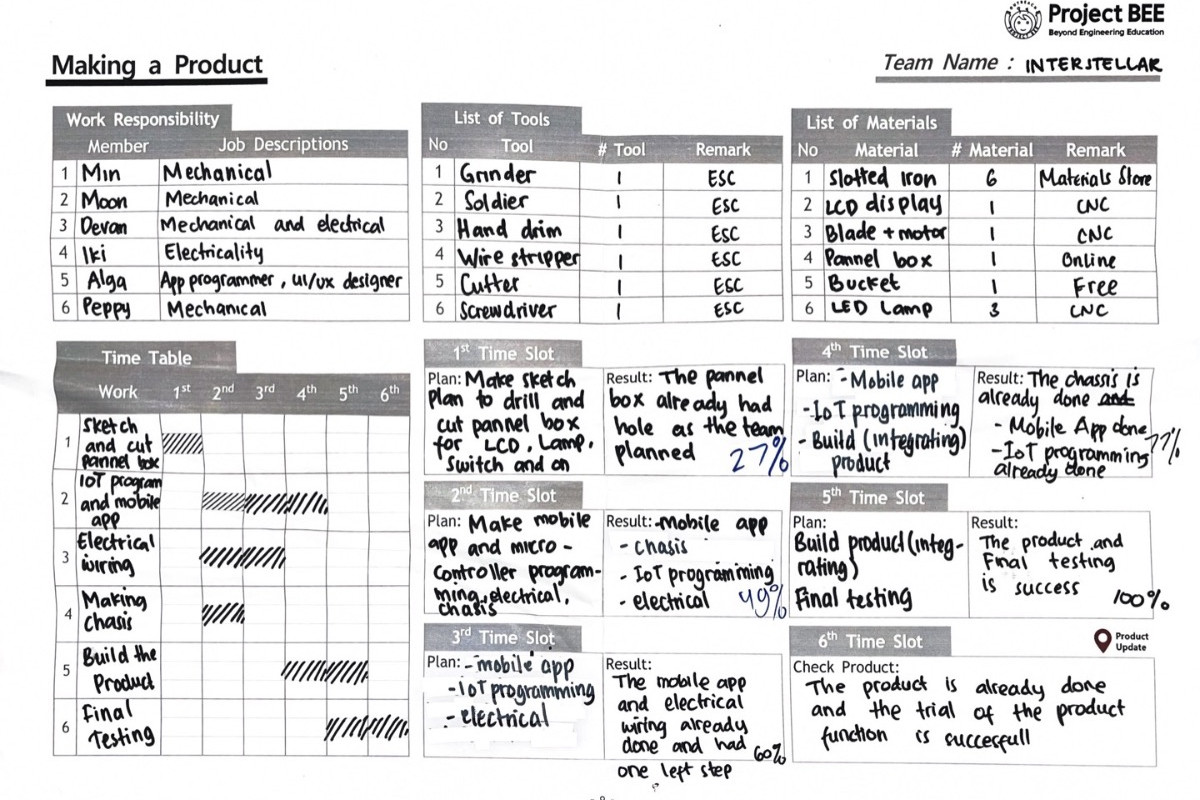 Project BEE
Beyond Engineering Education
Making a Product
Team Name : INTERSTELLAR
Work Responsibility
Member Job Descriptions
1 Min Mechanical
2 Moon Mechanical
3 Devan Mechanical and electrical
4 Iki Electricality
5 Alga App programmer, ui/ux designer
6 Peppy Mechanical
List of Tools
No Tool # Tool Remark
1 Grinder 1 ESC
2 Soldier 1 ESC
3 Hand drim 1 ESC
4 Wire stripper 1 ESC
5 Cutter 1 ESC
6 Screwdriver 1 ESC
List of Materials
No Material # Material Remark
1 Slotted Iron 6 Materials Store
2 LCD display 1 CNC
3 Blade + motor 1 CNC
4 Pannel box 1 Online
5 Bucket 1 Free
6 LED Lamp 3 CNC
Time Table
Work 1st 2nd 3rd 4th 5th 6th
1 Sketch
and cut
pannel box
2 IoT program
and mobile
app
3 Electrical
wiring
4 Making
chasis
5 Build the
Product
6 Final
Testing
1st Time Slot
Plan: Make sketch
plan to drill and
cut pannel box
for LCD, Lamp,
Switch and on
Result: The pannel
box already had
hole as the team
planned
27%
2nd Time Slot
Plan: Make mobile
app and micro-
controller program-
ming, electrical,
chasis
Result: -mobile app
- chasis
- IoT programming
- electrical 49%
3rd Time Slot
Plan: -mobile app
-IoT programming
- electrical
Result:
The mobile app
and electrical
wiring already
done and had 60%
one left step
4th Time Slot
Plan: -Mobile app
-IoT programming
- Build (integrating)
product
Result: The chassis is
already done and
- Mobile App done
-IoT programming 77%
already done
5th Time Slot
Plan:
Build product (integ-
rating)
Final testing
Result:
The product and
Final testing
is success
100%
6th Time Slot
Product
Update
Check Product:
The product is already done
and the trial of the product
function is succesfull